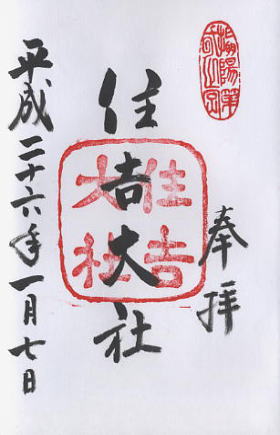 奉拝
住吉大社
住吉
大社
平成二十六年一月七日